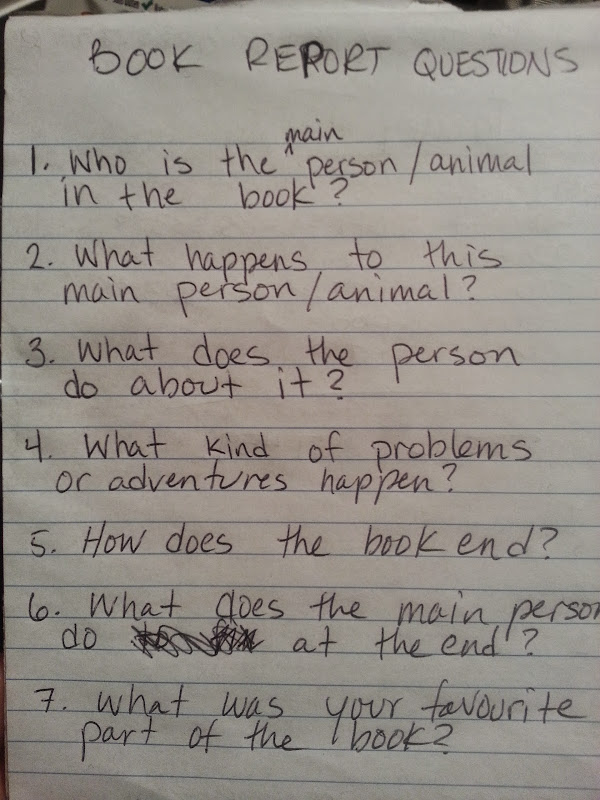 BOOK REPORT QUESTIONS
1. Who is the main person/animal
in the book?
2. What happens to this
main person/animal?
3. What does the person
do about it?
4. What kind of problems
or adventures happen?
5. How does the book end?
6. What does the main person
do at the end?
7. What was your favourite
part of the book?